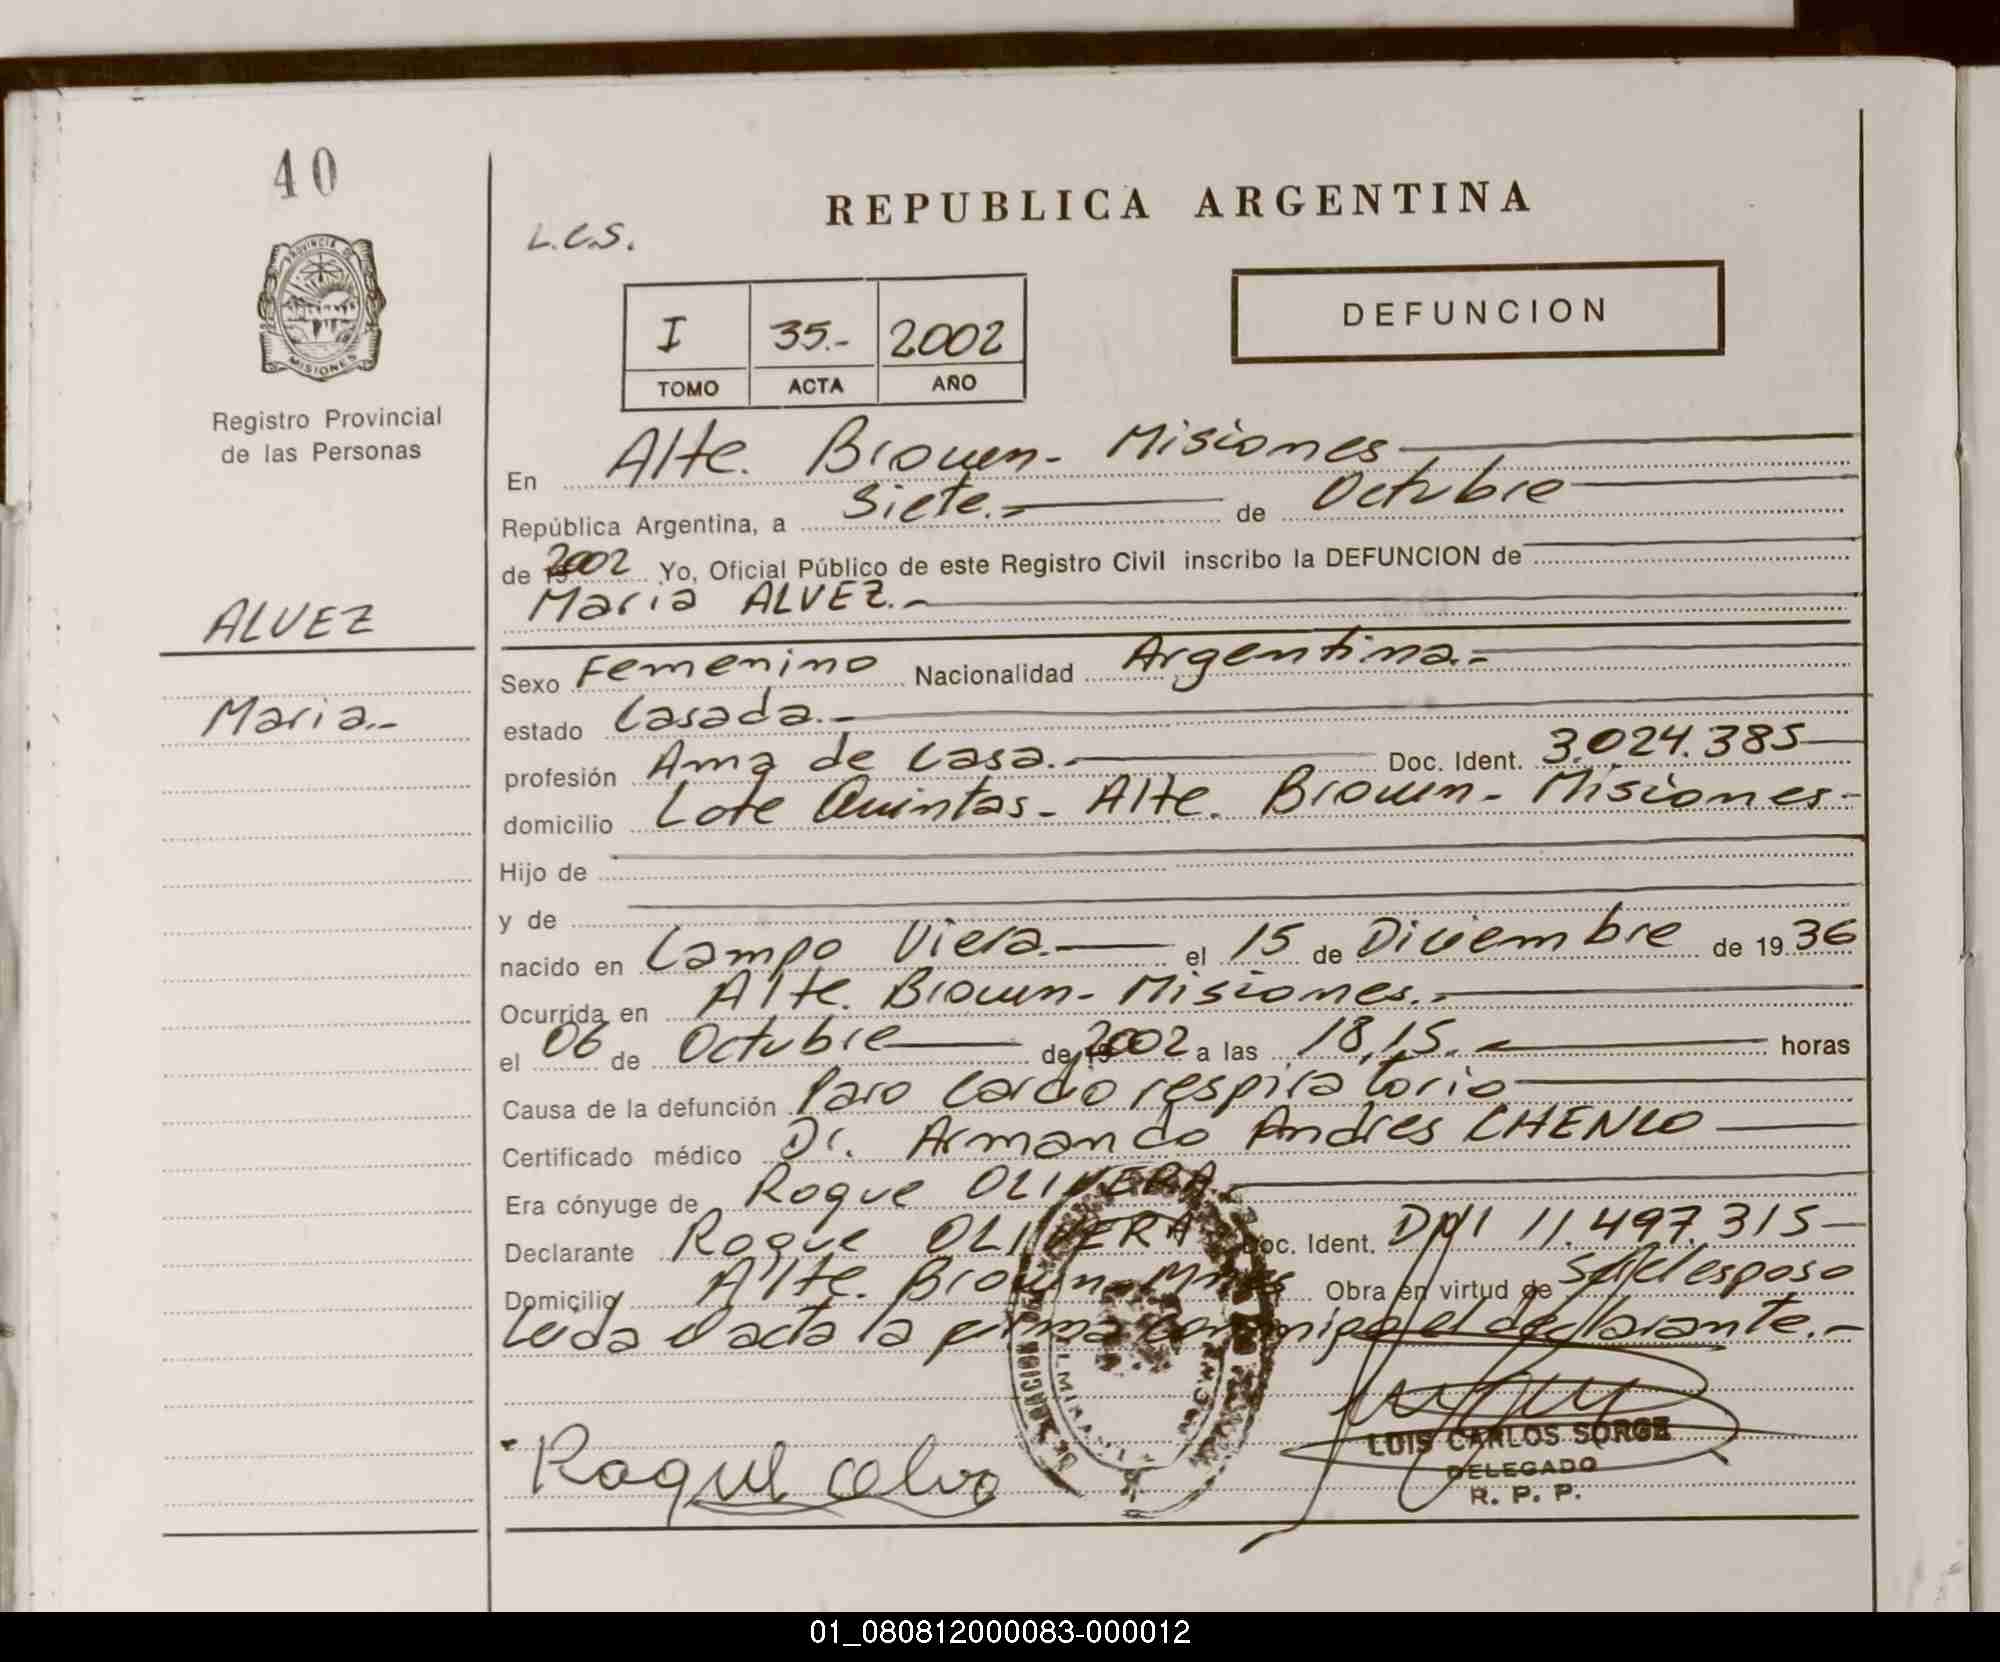 40
PROVINCIA DE
MISIONES
Registro Provincial
de las Personas
ALVEZ
Maria.-
REPUBLICA ARGENTINA
L.C.S.
I 35.- 2002
TOMO ACTA AÑO
DEFUNCION
En Alte. Brown - Misiones
República Argentina, a Siete.- de Octubre
de 2002 Yo, Oficial Público de este Registro Civil inscribo la DEFUNCION de
Maria ALVEZ.-
Sexo Femenino Nacionalidad Argentina.-
estado Casada.-
profesión Ama de Casa.- Doc. Ident. 3.024.385
domicilio Lote Quintas - Alte. Brown - Misiones -
Hijo de
y de
nacido en Campo Viera.- el 15 de Diciembre de 1936
Ocurrida en Alte. Brown - Misiones.-
el 06 de Octubre de 2002 a las 18,15.- horas
Causa de la defunción Paro Cardio respiratorio
Certificado médico Dr. Armando Andres CHENLO
Era cónyuge de Roque OLIVERA.-
Declarante Roque OLIVERA Doc. Ident. DNI 11.497.315
Domicilio Alte. Brown - Mnes Obra en virtud de Ser el esposo
Leida el acta la firma conmigo el declarante.-
Roque
LUIS CARLOS SORGE
DELEGADO
R. P. P.
01_080812000083-000012